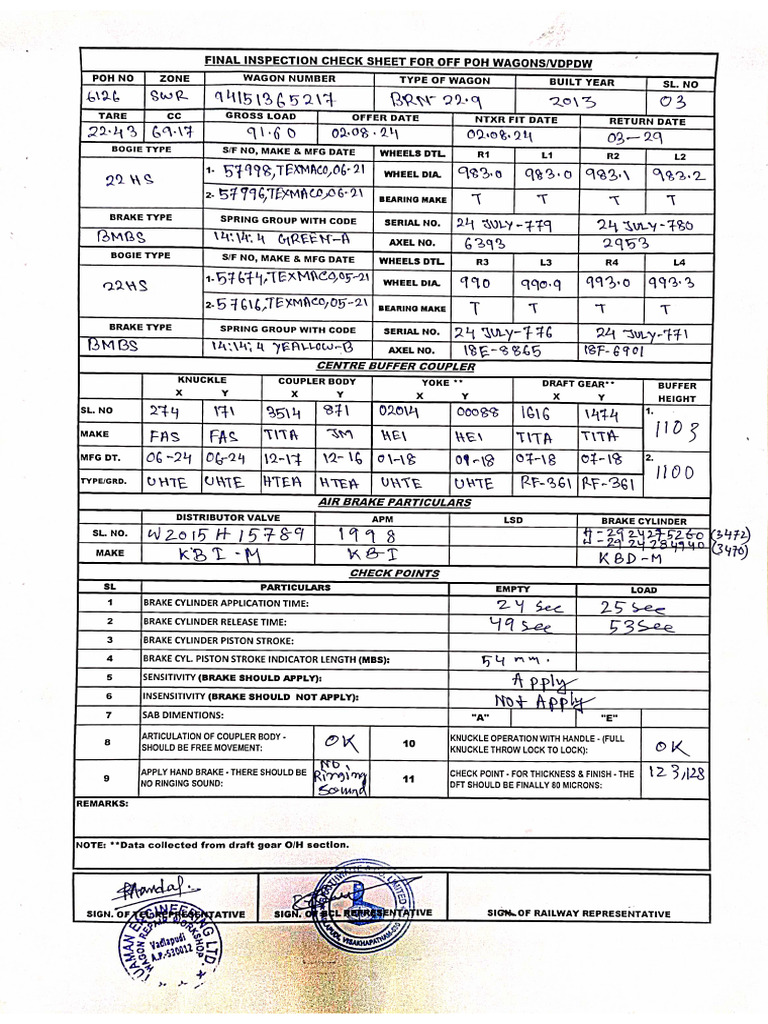 FINAL INSPECTION CHECK SHEET FOR OFF POH WAGONS/VDPDW
POH NO ZONE WAGON NUMBER TYPE OF WAGON BUILT YEAR SL. NO
6126 SWR 94151365217 BRN 22.9 2013 03
TARE CC GROSS LOAD OFFER DATE NTXR FIT DATE RETURN DATE
22.43 69.17 91.60 02.08.24 02.08.24 03-29
BOGIE TYPE S/F NO, MAKE & MFG DATE WHEELS DTL. R1 L1 R2 L2
22HS 1- 57998, TEXMACO, 06-21 WHEEL DIA. 983.0 983.0 983.1 983.2
2- 57996, TEXMACO, 06-21 BEARING MAKE T T T T
BRAKE TYPE SPRING GROUP WITH CODE SERIAL NO. 24 JULY-779 24 JULY-780
BMBS 14:14:4 GREEN-A AXEL NO. 6393 2953
BOGIE TYPE S/F NO, MAKE & MFG DATE WHEELS DTL. R3 L3 R4 L4
22HS 1- 57674, TEXMACO, 05-21 WHEEL DIA. 990 990.9 993.0 993.3
2- 57616, TEXMACO, 05-21 BEARING MAKE T T T T
BRAKE TYPE SPRING GROUP WITH CODE SERIAL NO. 24 JULY-776 24 JULY-771
BMBS 14:14:4 YEALLOW-B AXEL NO. 18E-8865 18F-6901
CENTRE BUFFER COUPLER
KNUCKLE COUPLER BODY YOKE ** DRAFT GEAR** BUFFER HEIGHT
X Y X Y X Y X Y
SL. NO 274 171 3514 871 02014 00088 1616 1474 1. 1103
MAKE FAS FAS TITA JM HEI HEI TITA TITA
MFG DT. 06-24 06-24 12-17 12-16 01-18 09-18 07-18 07-18 2. 1100
TYPE/GRD. UHTE UHTE HTEA HTEA UHTE UHTE RF-361 RF-361
AIR BRAKE PARTICULARS
DISTRIBUTOR VALVE APM LSD BRAKE CYLINDER
SL. NO. W2015H15789 1998 2924275260 (3472)
2924284940 (3470)
MAKE KBI-M KBI KBD-M
CHECK POINTS
SL PARTICULARS EMPTY LOAD
1 BRAKE CYLINDER APPLICATION TIME: 24 Sec 25 Sec
2 BRAKE CYLINDER RELEASE TIME: 49 See 53 See
3 BRAKE CYLINDER PISTON STROKE:
4 BRAKE CYL. PISTON STROKE INDICATOR LENGTH (MBS): 54 mm.
5 SENSITIVITY (BRAKE SHOULD APPLY): Apply
6 INSENSITIVITY (BRAKE SHOULD NOT APPLY): Not Apply
7 SAB DIMENTIONS: "A" "E"
8 ARTICULATION OF COUPLER BODY - SHOULD BE FREE MOVEMENT: OK 10 KNUCKLE OPERATION WITH HANDLE - (FULL KNUCKLE THROW LOCK TO LOCK): OK
9 APPLY HAND BRAKE - THERE SHOULD BE NO RINGING SOUND: No, Ringing Sound 11 CHECK POINT - FOR THICKNESS & FINISH - THE DFT SHOULD BE FINALLY 80 MICRONS: 123,128
REMARKS:
NOTE: **Data collected from draft gear O/H section.
SIGN. OF REPRESENTATIVE SIGN. OF BCL REPRESENTATIVE SIGN. OF RAILWAY REPRESENTATIVE
TUAMAN ENGINEERING LTD.
WAGON REPAIR WORKSHOP
Vadlapudi
A.P.-530012